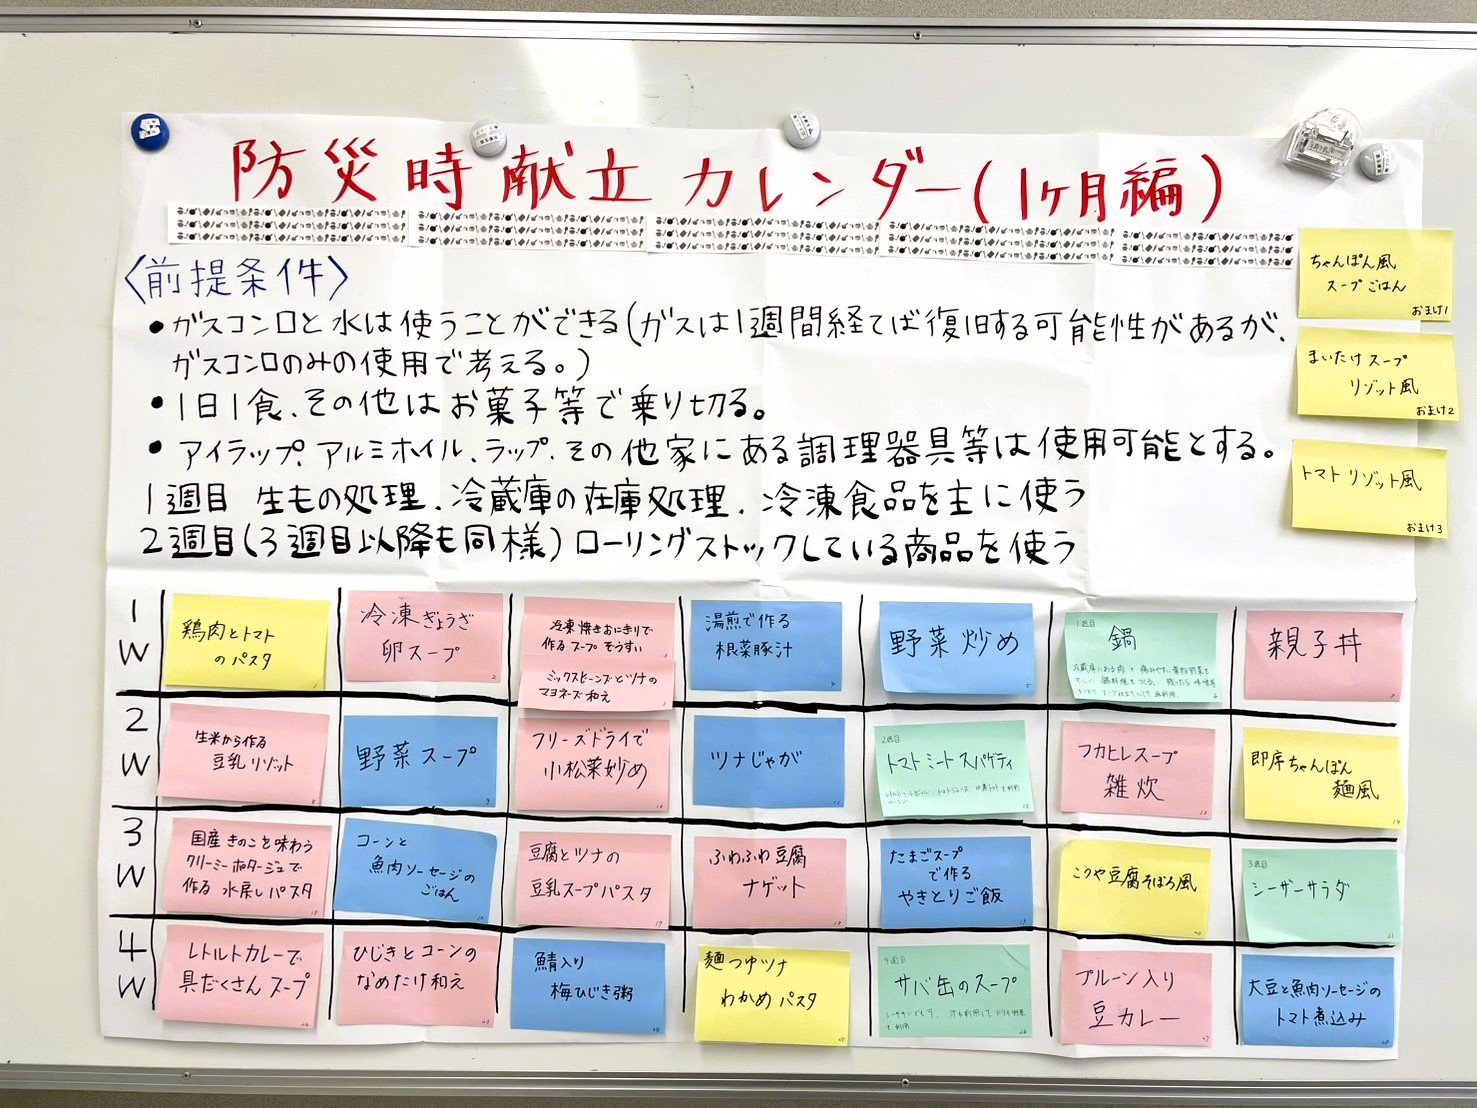 防災時献立カレンダー(1ヶ月編)
〈前提条件〉
・ガスコンロと水は使うことができる(ガスは1週間経てば復旧する可能性があるが、
ガスコンロのみの使用で考える。)
・1日1食、その他はお菓子等で乗り切る。
・アイラップ、アルミホイル、ラップ、その他家にある調理器具等は使用可能とする。
1週目 生もの処理、冷蔵庫の在庫処理、冷凍食品を主に使う
2週目(3週目以降も同様)ローリングストックしている商品を使う
ちゃんぽん風
スープごはん
おまけ1
まいたけスープ
リゾット風
おまけ2
トマトリゾット風
おまけ3
1
W
鶏肉とトマト
のパスタ
1
冷凍ぎょうざ
卵スープ
2
冷凍焼きおにぎりで
作るスープぞうすい
3
ミックスビーンズとツナの
マヨネーズ和え
湯煎で作る
根菜豚汁
4
野菜炒め
5
1週目
鍋
6
親子丼
7
2
W
生米から作る
豆乳リゾット
8
野菜スープ
9
フリーズドライで
小松菜炒め
10
ツナじゃが
11
2週目
トマトミートスパゲティ
12
フカヒレスープ
雑炊
13
即席ちゃんぽん
麺風
14
3
W
国産きのこを味わう
クリーミーポタージュで
作る水戻しパスタ
15
コーンと
魚肉ソーセージの
ごはん
16
豆腐とツナの
豆乳スープパスタ
17
ふわふわ豆腐
ナゲット
18
たまごスープ
で作る
やきとりご飯
19
こうや豆腐そぼろ風
20
3週目
シーザーサラダ
21
4
W
レトルトカレーで
具だくさんスープ
22
ひじきとコーンの
なめたけ和え
23
鯖入り
梅ひじき粥
24
麺つゆツナ
わかめパスタ
25
4週目
サバ缶のスープ
26
プルーン入り
豆カレー
27
大豆と魚肉ソーセージの
トマト煮込み
28